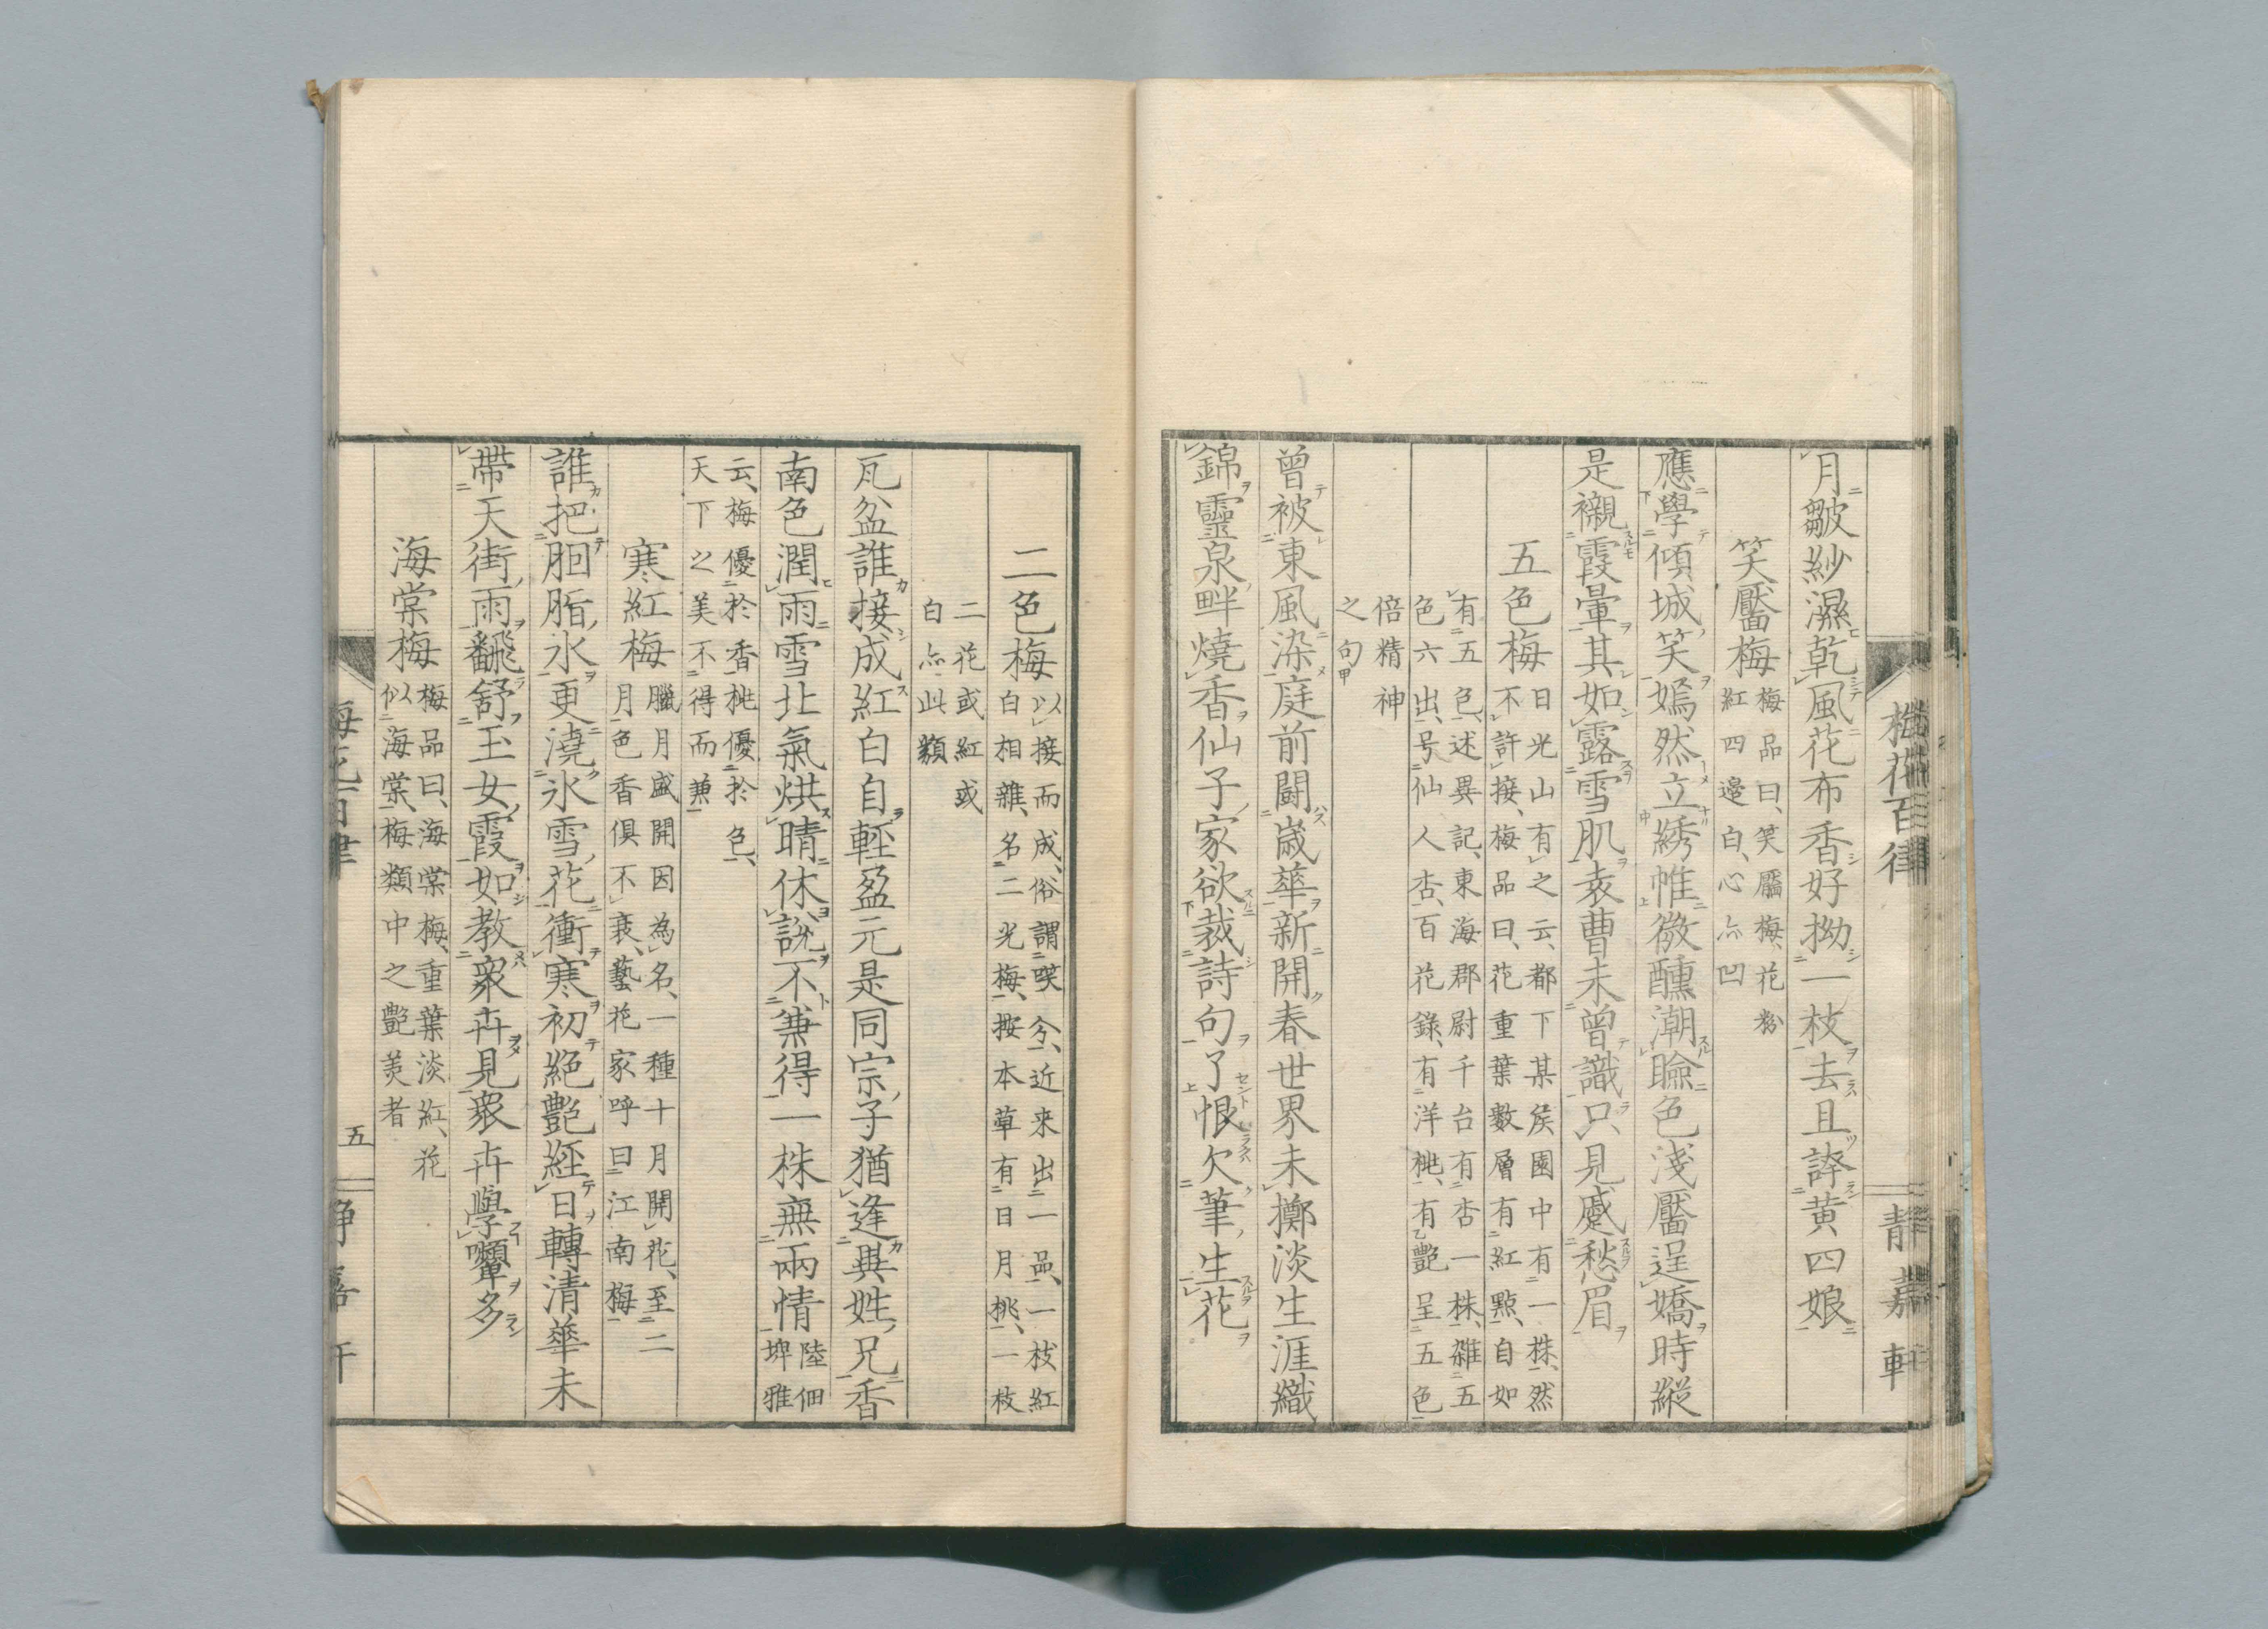 梅花百律
靜嘉軒
月皺紗濕乾風花布香好拗一枝去且誇黄四娘
笑靨梅
梅品曰、笑靨梅、花粉
紅四邊白、心亦凹
應學傾城笑嫣然立綉帷微醺潮臉色淺靨逞嬌時縱
是襯霞暈其如露雪肌袁曹未曾識只見蹙愁眉
五色梅
日光山有之云、都下某侯園中有一株、然
不許接、梅品曰、花重葉數層有紅點、自如
有五色、述異記、東海郡尉千台有杏一株、雜五
色六出、号仙人杏、百花錄、有洋桃、有艷呈五色
倍精神
之句
曾被東風染庭前闘歳華新開春世界未擲淡生涯織
錦靈泉畔燒香仙子家欲裁詩句了恨欠筆生花
二色梅
以接而成、俗謂咲分、近来出一品、一枝紅
白相雜、名二光梅、按本草有日月桃、一枝
二花或紅或
白亦此類
瓦盆誰接成紅白自輕盈元是同宗子猶逢異姓兄香
南色潤雨雪北氣烘晴休說不兼得一株無兩情
陸佃
埤雅
云、梅優於香桃優於色、
天下之美不得而兼
寒紅梅
臘月盛開因為名、一種十月開花、至二
月色香俱不衰、藝花家呼曰江南梅
誰把胭脂水更澆氷雪花衝寒初絕艷經日轉清華未
帶天街雨翻舒玉女霞如教衆卉見衆卉學顰多
海棠梅
梅品曰、海棠梅、重葉淡紅、花
似海棠、梅類中之艷美者
五